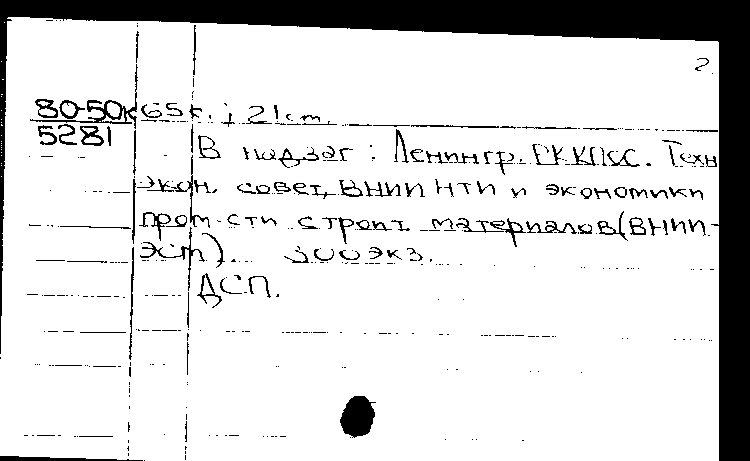 2
80-50к 65к. ; 21 cm.
5281
В надзаг: Ленингр. ГК КПСС. Техн
экон. совет, ВНИИ НТИ и экономики
пром-сти строит. материалов (ВНИИ-
ЭСМ). 300 экз.
ДСП.